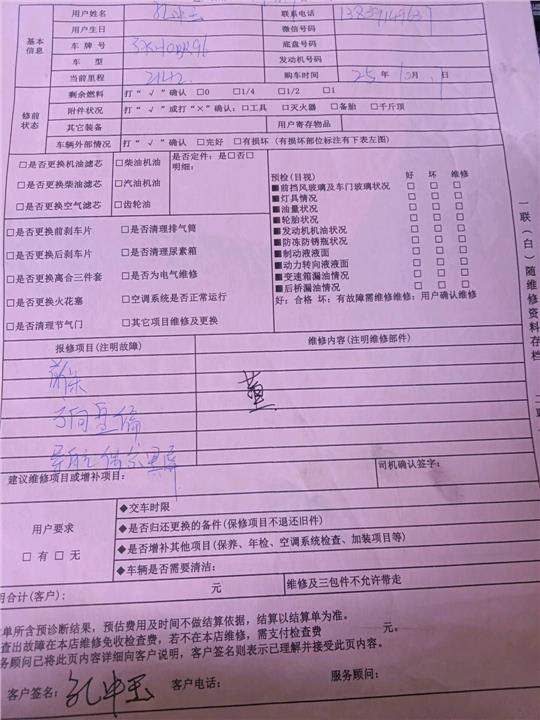 基本信息
用户姓名 联系电话
用户生日 微信号码
车 牌 号 底盘号码
车 型 发动机号码
当前里程 2142 购车时间 25年10月 日
修前状态
剩余燃料 打"√"确认 □0 □1/4 □1/2 □1
附件状况 打"√"或打"×"确认:□工具 □灭火器 □备胎 □千斤顶
其它装备 用户寄存物品
车辆外部情况 打"√"确认 □完好 □有损坏(有损坏部位标注有下表左图)
□是否更换机油滤芯 □柴油机油 是否定件:是□否□
明细:
□是否更换柴油滤芯 □汽油机油
□是否更换空气滤芯 □齿轮油
预检(目视) 好 坏 维修
■前挡风玻璃及车门玻璃状况 □ □ □
■灯具情况 □ □ □
■油量状况 □ □ □
■轮胎状况 □ □ □
■发动机机油状况 □ □ □
■防冻防锈瓶状况 □ □ □
■制动液液面 □ □ □
■动力转向液液面 □ □ □
■变速箱漏油情况 □ □ □
■后桥漏油情况 □ □ □
好:合格 坏:有故障需维修维修:用户确认维修
□是否更换前刹车片 □是否清理排气筒
□是否更换后刹车片 □是否清理尿素箱
□是否更换离合三件套 □是否为电气维修
□是否更换火花塞 □空调系统是否正常运行
□是否清理节气门 □其它项目维修及更换
一联(白)随维修资料存档
报修项目(注明故障) 维修内容(注明维修部件)
导航偶尔黑屏
建议维修项目或增补项目: 司机确认签字:
用户要求
□有 □无
◆交车时限
◆是否归还更换的备件(保修项目不退还旧件)
◆是否增补其他项目(保养、年检、空调系统检查、加装项目等)
◆车辆是否需要清洁:
用合计(客户): 元 维修及三包件不允许带走
单所含预诊断结果,预估费用及时间不做结算依据,结算以结算单为准。
查出故障在本店维修免收检查费,若不在本店维修,需支付检查费 元。
务顾问已将此页内容详细向客户说明,客户签名则表示已理解并接受此页内容。
客户签名: 客户电话: 服务顾问: